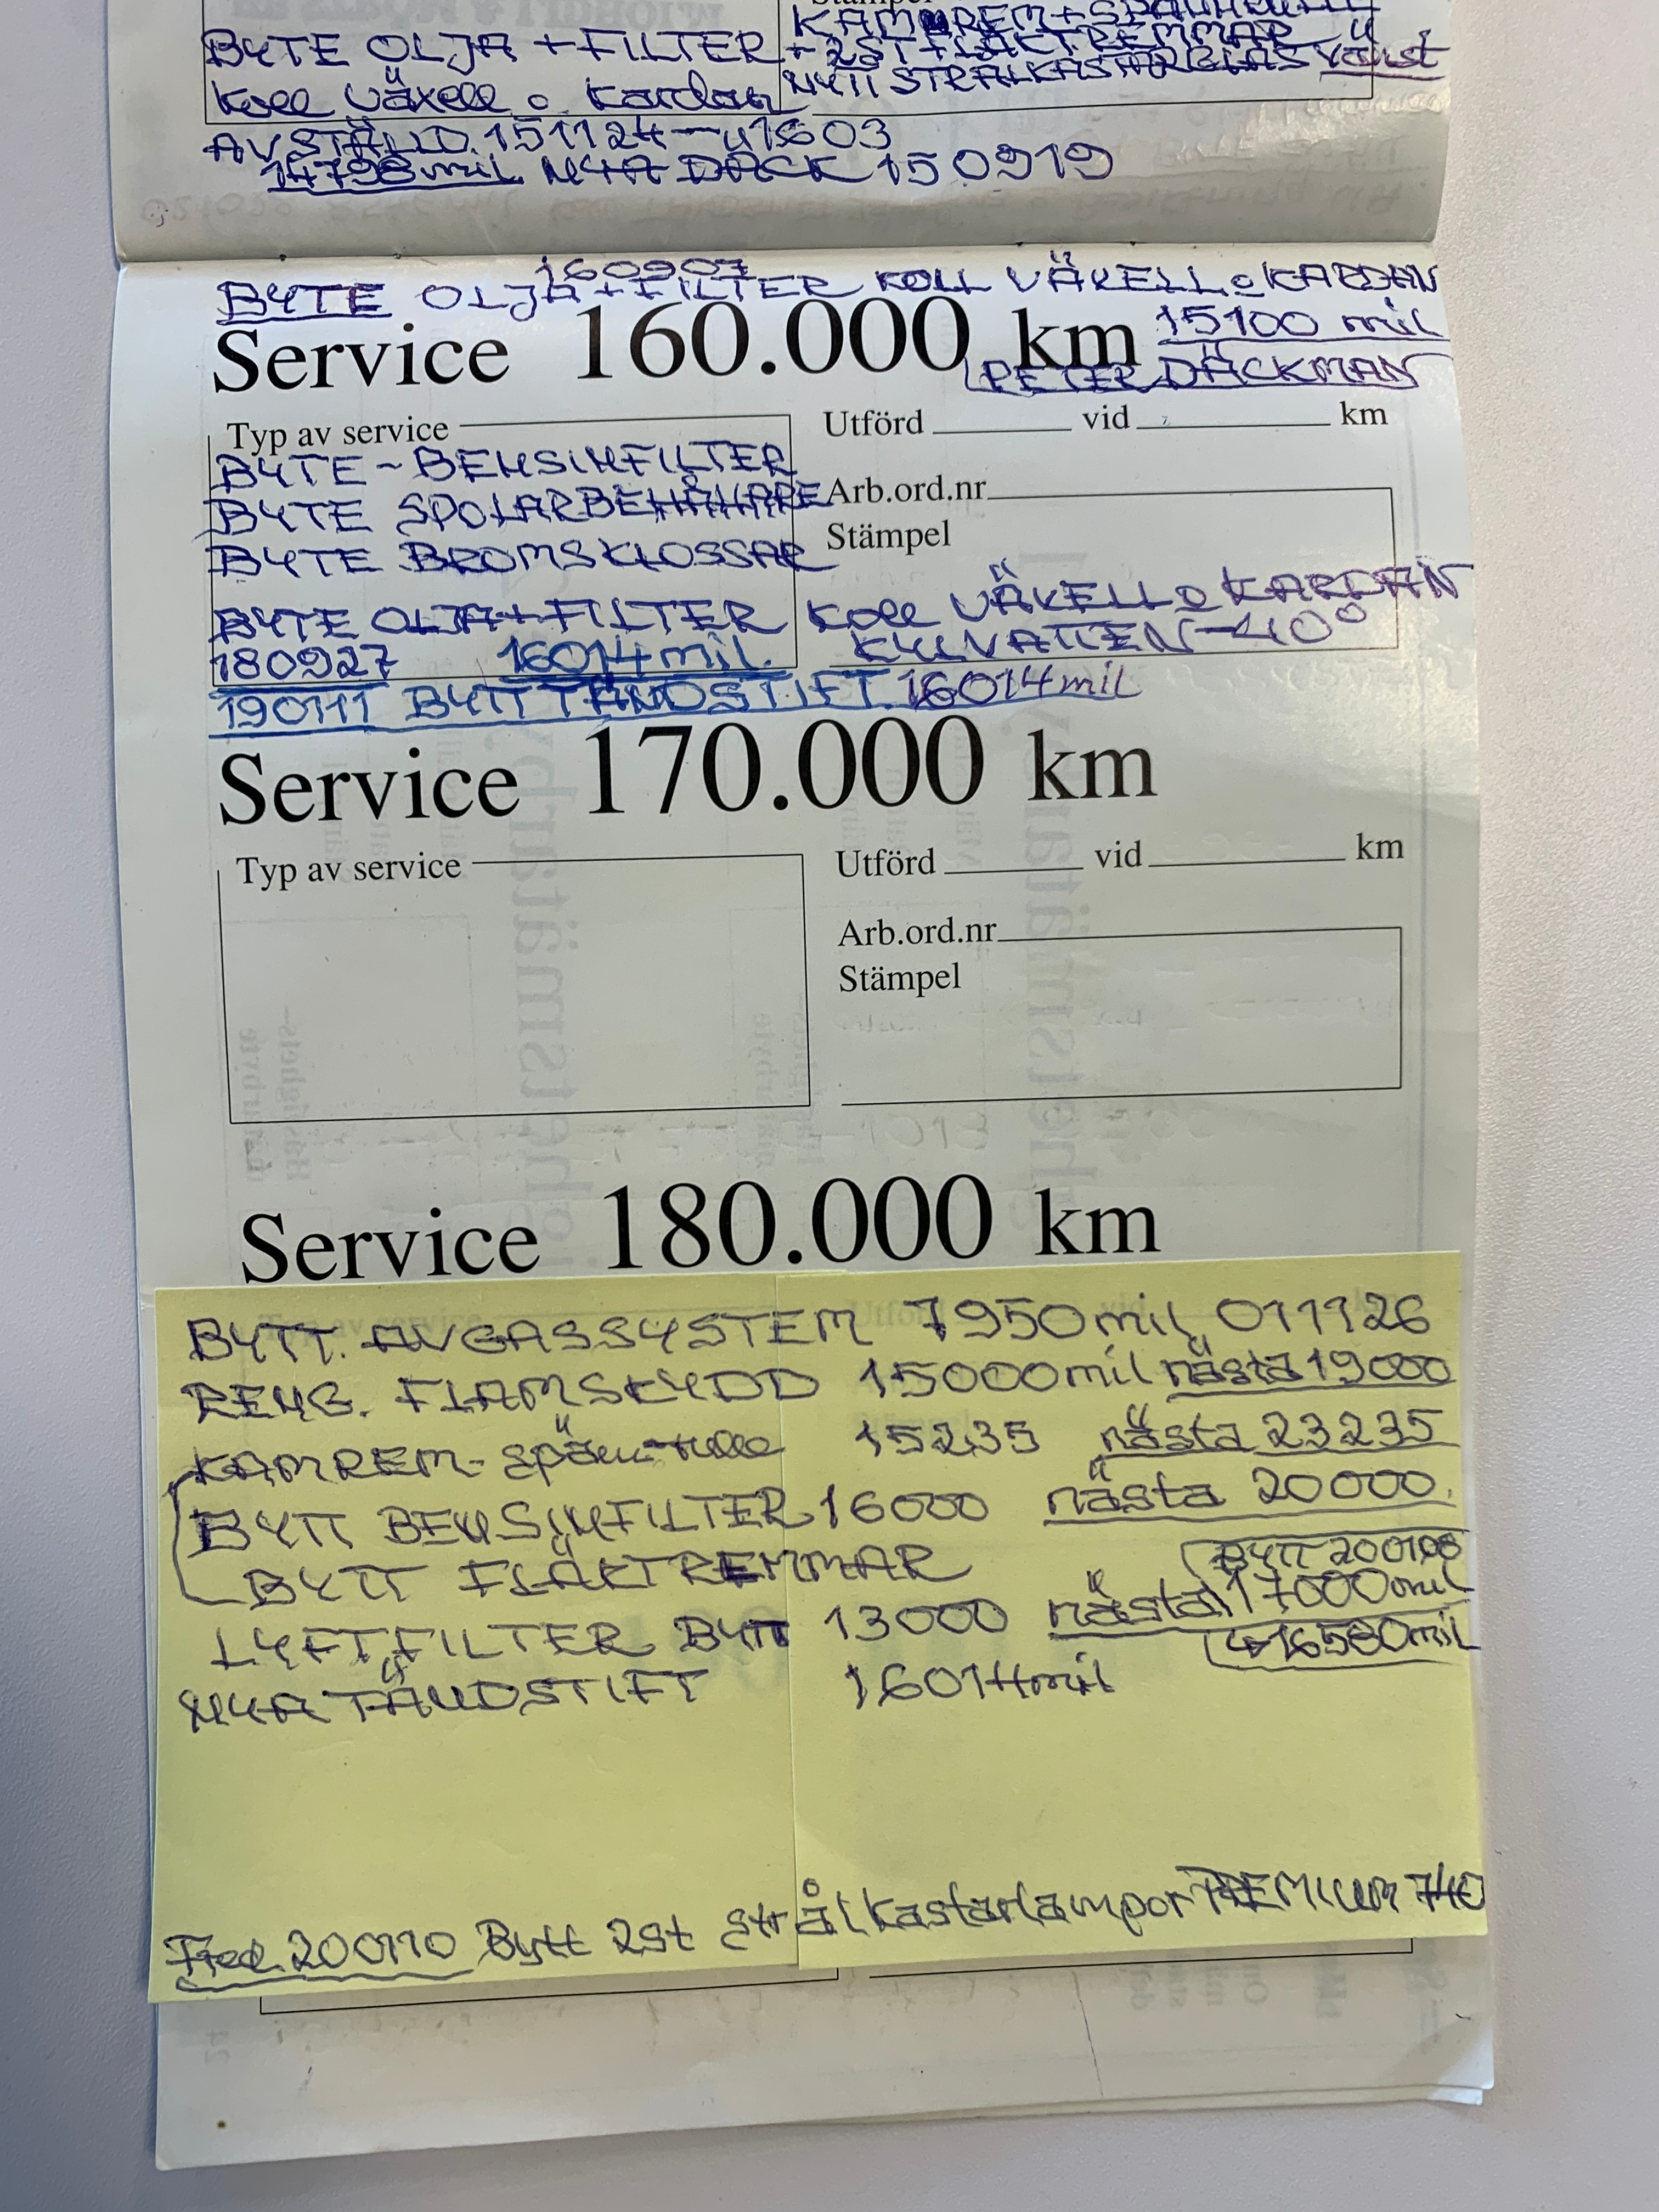 BYTE OLJA + FILTER
+ 2ST FLÄKTREMMAR
NYTT STRÅLKASTARGLAS
Koll växell o Kardan
AVSTÄLLD 151124 1603
14798 mil NYA DÄCK 150919
160907
BYTE OLJA + FILTER KOLL VÄXELL o KARDAN
Service 160.000 km
15100 mil
PETER DÄCKMAN
Typ av service
Utförd vid km
BYTE - BENSINFILTER
BYTE SPOLARBEHÅLLARE
Arb.ord.nr
Stämpel
BYTE BROMSKLOSSAR
BYTE OLJA + FILTER Koll VÄXELL o KARDAN
KYLVATTEN -40°
180927 16014 mil.
190111 BYTT TÄNDSTIFT. 16014 mil
Service 170.000 km
Typ av service
Utförd vid km
Arb.ord.nr
Stämpel
Service 180.000 km
BYTT. AVGASSYSTEM 7950 mil 011126
RENG. FLAMSKYDD 15000 mil nästa 19000
KAMREM - spännrulle 15235 nästa 23235
BYTT BENSINFILTER 16000 nästa 20000.
BYTT FLÄKTREMMAR
BYTT 200108
LUFTFILTER BYTT 13000 nästa 17000 mil
16580 mil
NYA TÄNDSTIFT 16014 mil
Fred. 200110 Bytt 2st strålkastarlampor PREMIUM 740